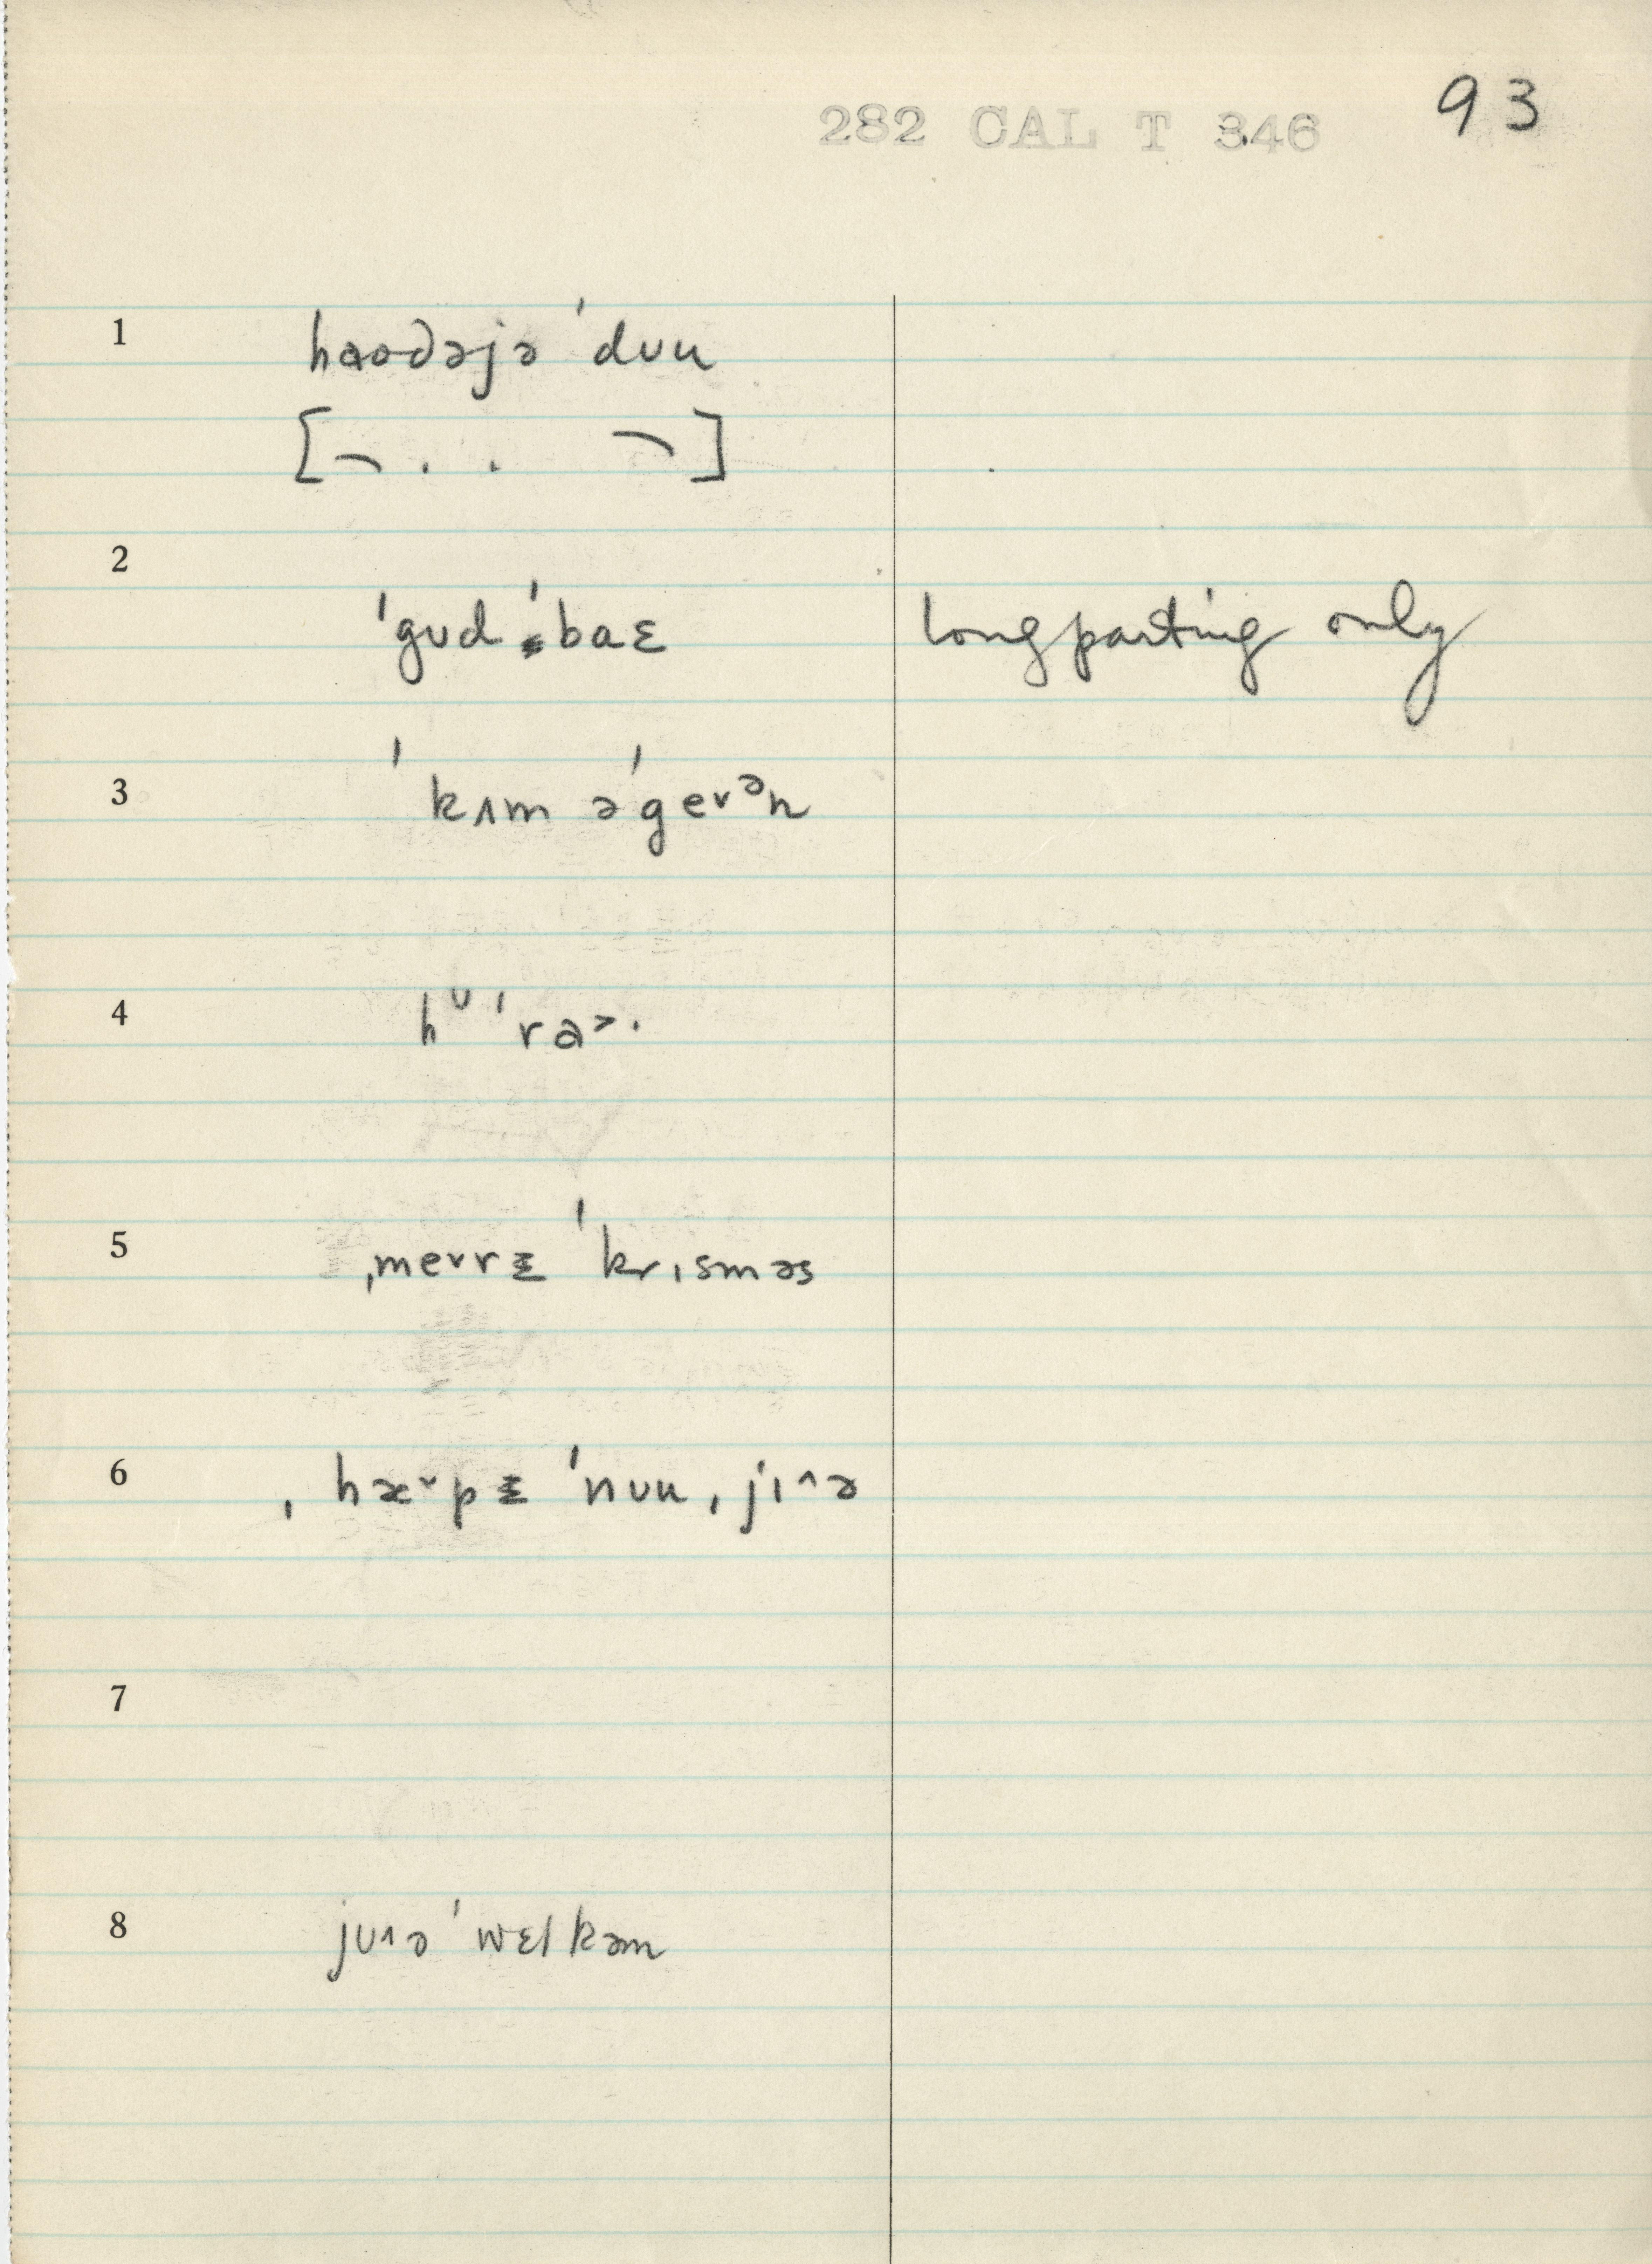 282 CAL T 346 93
1 haodəjə ˈdʊu
[ . . ]
2
ˈgʊd ˈbaɛ longparting only
3 ˈkʌm əˈge˅ᵊn
4 hᶷˈra˃·
5 ˌme˅rɪ ˈkrɪsməs
6 ˌhæ˅pɪ ˈnʊu ˌjɪ^ə
7
8 jʊ^ə ˈwɛlkəm